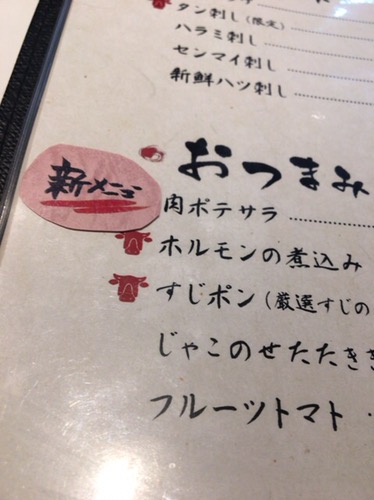 タン刺し(限定)
ハラミ刺し
センマイ刺し
新鮮ハツ刺し
おつまみ
新メニュー
肉ポテサラ
ホルモンの煮込み
すじポン(厳選すじの
じゃこのせたたき
フルーツトマト